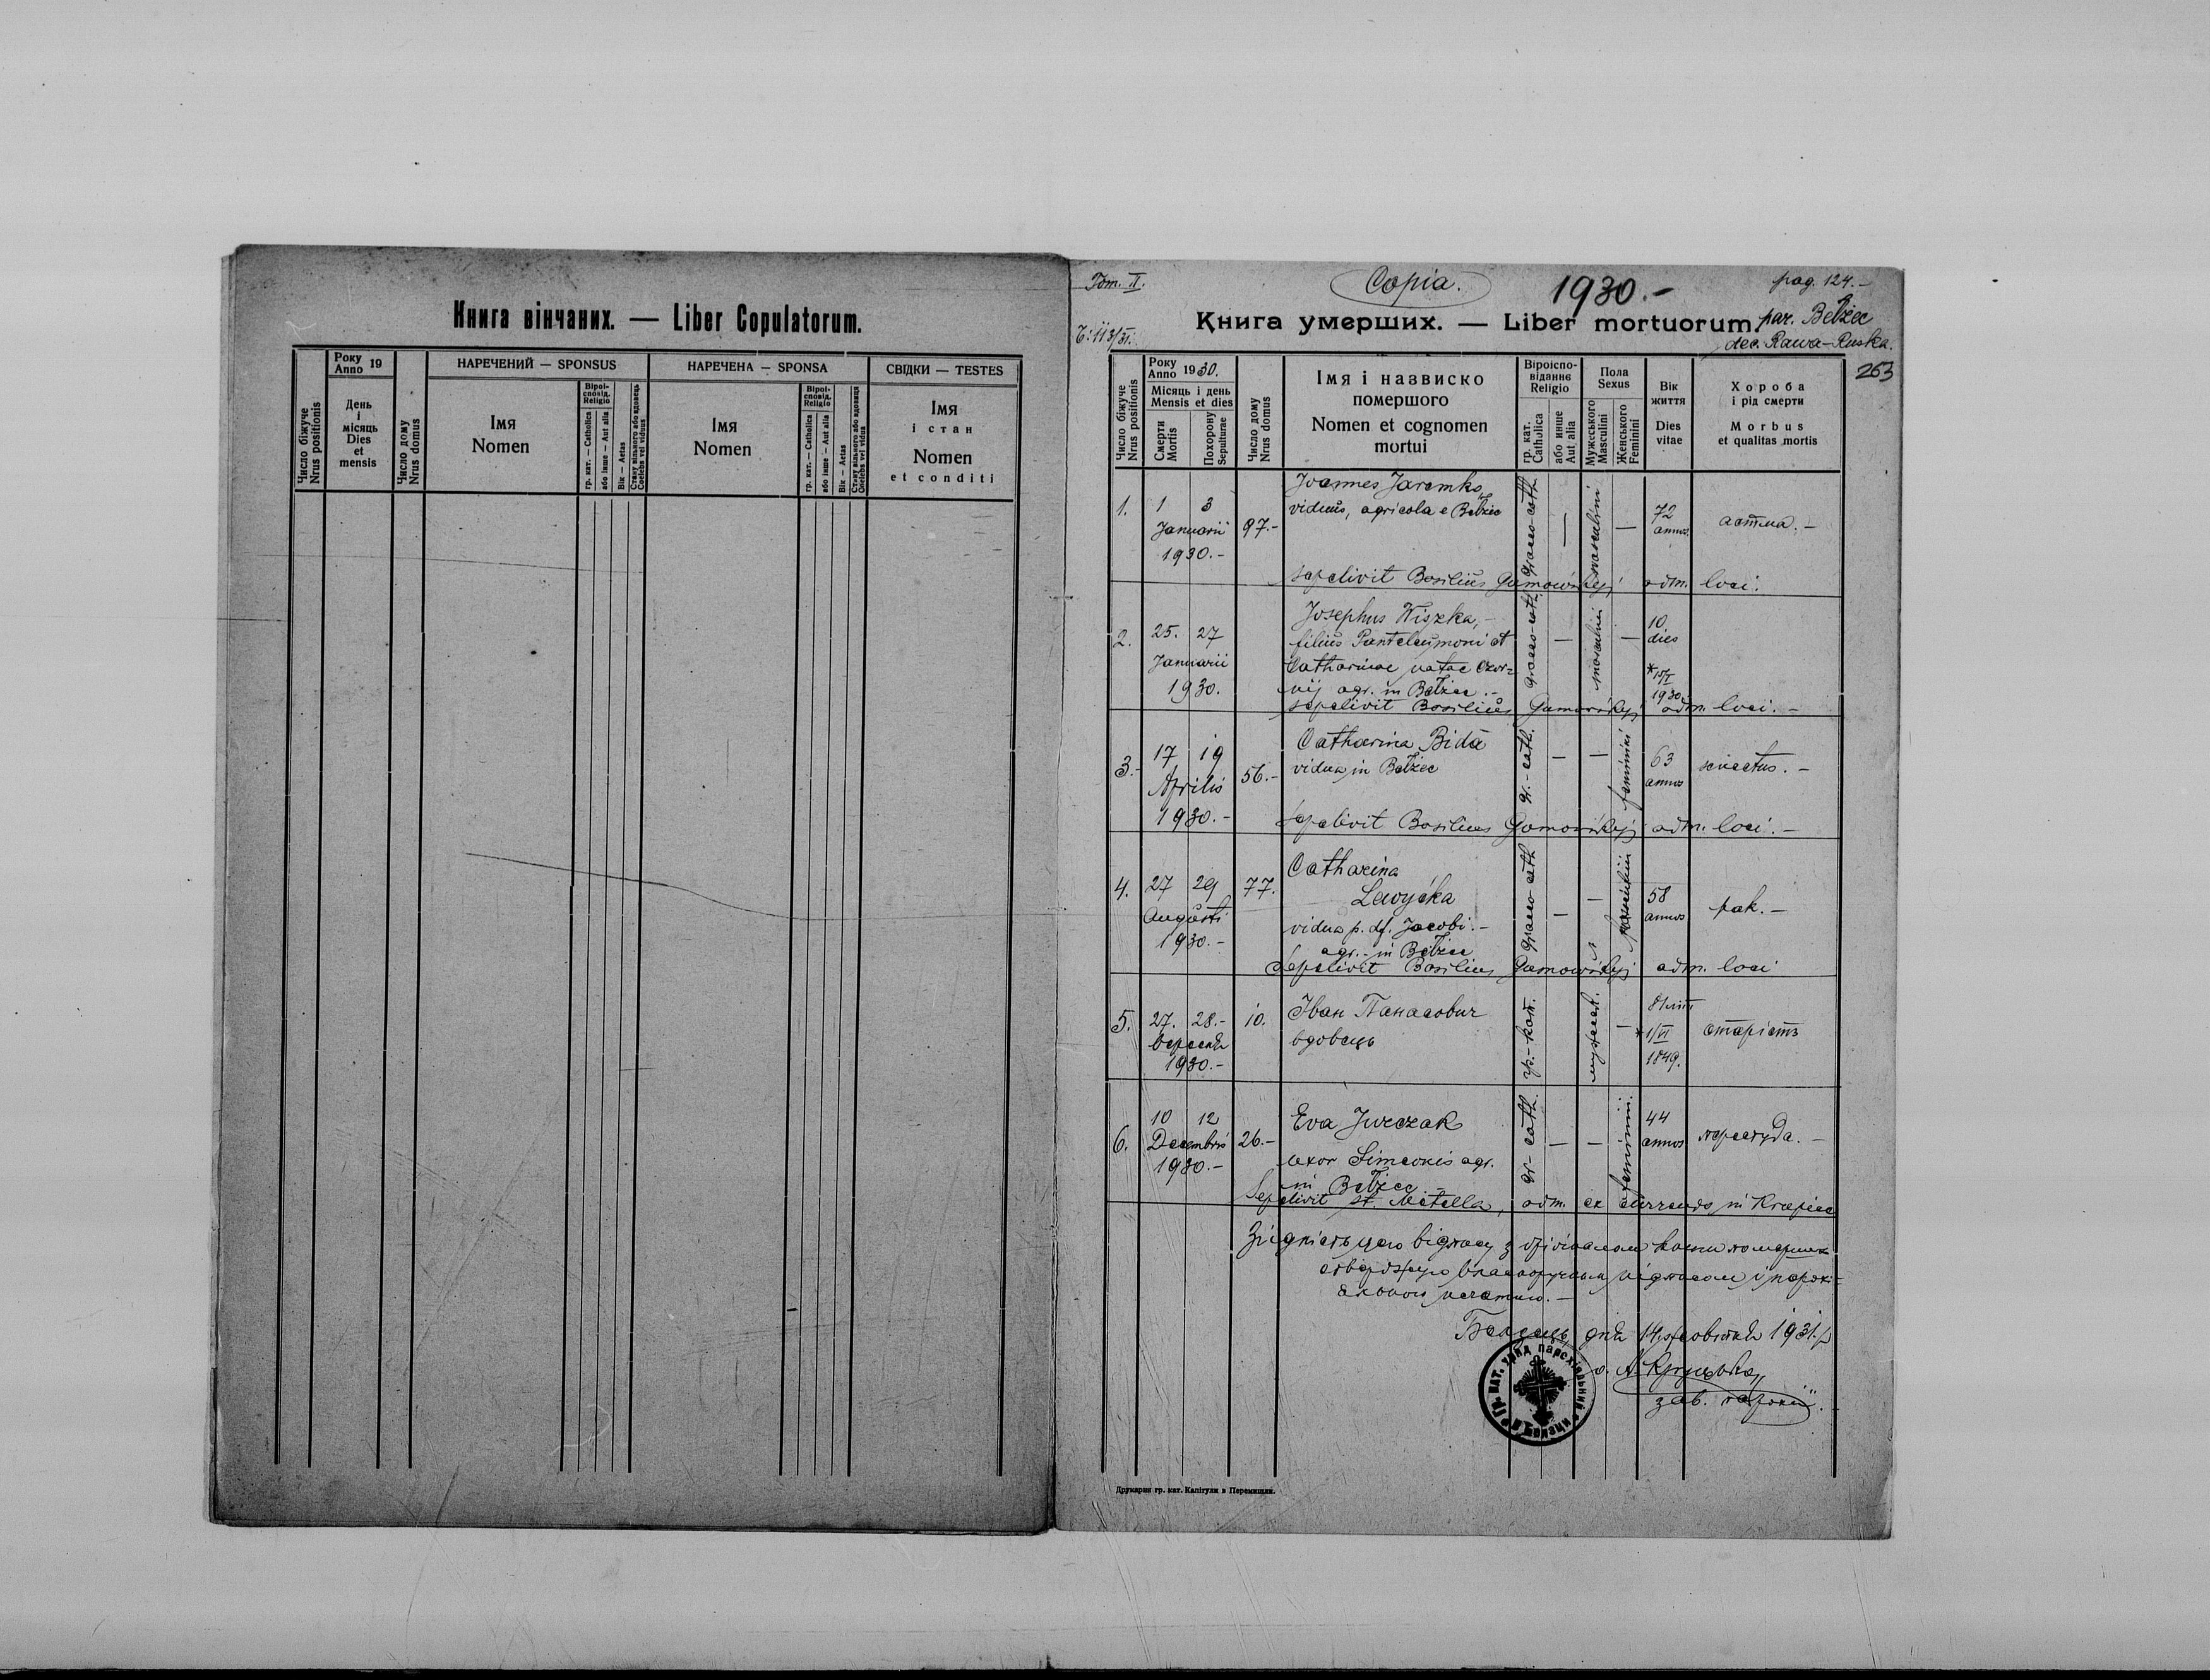 Книга вінчаних. — Liber Copulatorum.
Число біжуче
Nrus positionis
Року
Anno 19
День
і
місяць
Dies
et
mensis
Число дому
Nrus domus
НАРЕЧЕНИЙ — SPONSUS
Імя
Nomen
Віроі-
сповід.
Religio
гр. кат. — Catholica
або інше — Aut alia
Вік — Aetas
Стану вільного або вдовець
Coelebs vel viduus
НАРЕЧЕНА — SPONSA
Імя
Nomen
Віроі-
сповід.
Religio
гр. кат. — Catholica
або інше — Aut alia
Вік — Aetas
Стану вільного або вдовиця
Coelebs vel vidua
СВІДКИ — TESTES
Імя
і стан
Nomen
et conditi
Tom. II.
Copia.
1930.-
pag. 124.-
Книга умерших. — Liber mortuorum.
par. Bełżec
dec. Rawa-Ruska.
Ч: 113/31.
263
Число біжуче
Nrus positionis
Року
Anno 1930.
Місяць і день
Mensis et dies
Смерти
Mortis
Похорону
Sepulturae
Число дому
Nrus domus
Імя і назвиско
помершого
Nomen et cognomen
mortui
Віроіспо-
віданнє
Religio
гр. кат.
Catholica
або инше
Aut alia
Пола
Sexus
Мужеського
Masculini
Женського
Feminini
Вік
життя
Dies
vitae
Хороба
і рід смерти
Morbus
et qualitas mortis
1. 1 3 Januarii 1930.- 97.-
Joannes Jaremko,
viduus, agricola e Bełżec
graeco-cath. — masculini —
72 annos. астма.-
sepelivit Basilius Gamowśkyj adm. loci.
2. 25. 27 Januarii 1930.
Josephus Wiszka,-
filius Panteleymoni et
Catharinae natae Czor=
nij agr. in Bełżec.-
graeco-cath. — masculini —
10 dies * 15/I 1930.
sepelivit Basilius Gamowśkyj adm. loci.-
3.- 17 19 Aprilis 1930.- 56.-
Catharina Bida
vidua in Bełżec
gr.-cath. — — feminini
63 annos senectus.-
Sepelivit Basilius Gamowśkyj adm. loci.-
4. 27 29 Augusti 1930.- 77.
Catharina
Lewyćka
vidua p. df. Jacobi.-
agr.- in Bełżec
graeco-cath — — feminini
58 annos рак.-
Sepelivit Basilius Gamowśkyj adm. loci
5. 27. 28.- вересня 1930.- 10.
Іван Панасович
вдовець
гр.-кат. мужеськ. —
81 літ * 1/VI 1849. старість
6. 10 12 Decembris 1930.- 26.-
Eva Jurczak
uxor Simeonis agr.
in Bełżec
gr-cath. — — feminini.
44 annos простуда.-
Sepelivit St. Metella, adm. ex currendo in Krapiec
Згідність цього відпису з оріґіналом книги померших
стверджую власноручним підписом і парохі=
яльною печаткою.-
Белзець, дня 14 жовтня 1931. р
зав. парохії.
Гр. кат. уряд парохіяльний в Белзци
Друкарня гр. кат. Капітули в Перемишли.